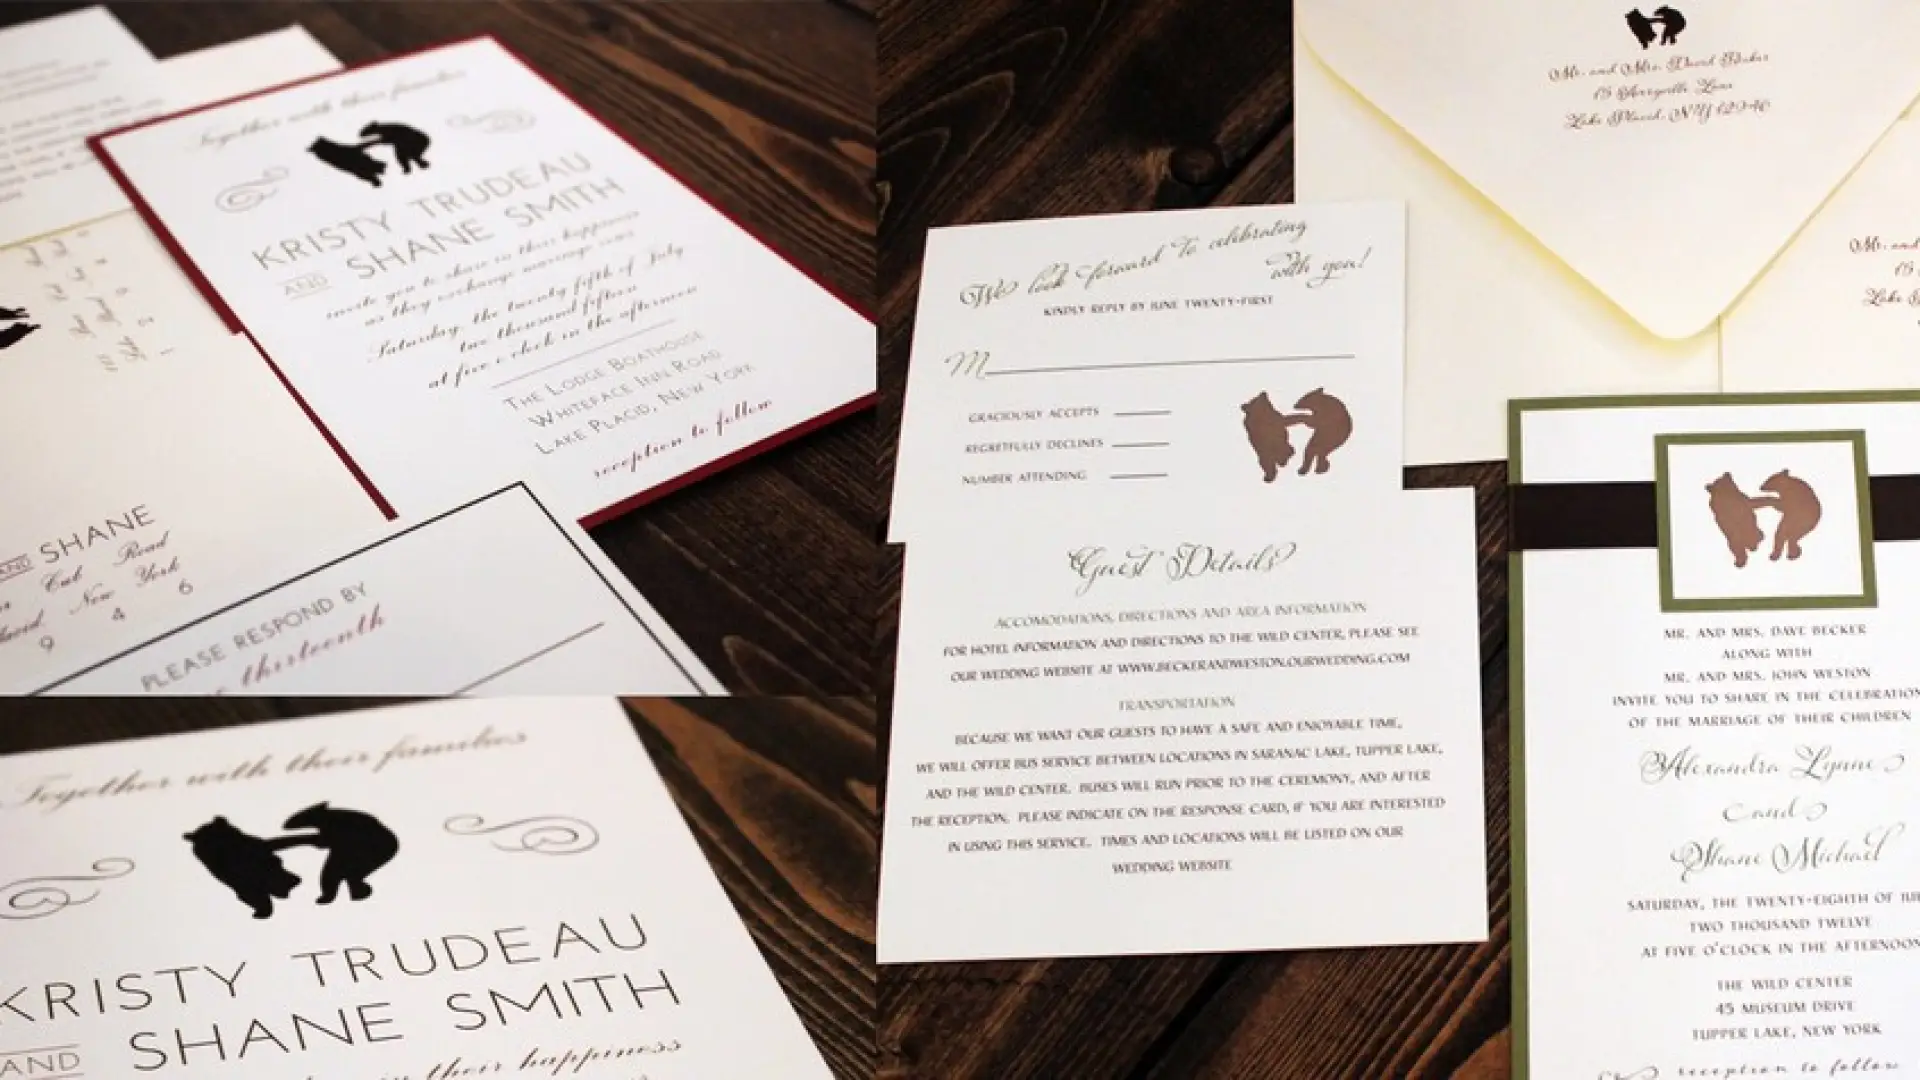 Together with their families
KRISTY TRUDEAU
AND SHANE SMITH
invite you to share in their happiness
as they exchange marriage vows
Saturday, the twenty fifth of July
two thousand fifteen
at five o'clock in the afternoon
THE LODGE BOATHOUSE
WHITEFACE INN ROAD
LAKE PLACID, NEW YORK
reception to follow
AND SHANE
Cub Road
New York
9 4 6
PLEASE RESPOND BY
thirteenth
Together with their families
KRISTY TRUDEAU
AND SHANE SMITH
their happiness
Mr. and Mrs. David Baker
Lake Placid, NY 12946
Mr. and
15
Lake
We look forward to celebrating
with you!
KINDLY REPLY BY JUNE TWENTY-FIRST
M
GRACIOUSLY ACCEPTS
REGRETFULLY DECLINES
NUMBER ATTENDING
Guest Details
ACCOMODATIONS, DIRECTIONS AND AREA INFORMATION
FOR HOTEL INFORMATION AND DIRECTIONS TO THE WILD CENTER, PLEASE SEE
OUR WEDDING WEBSITE AT WWW.BECKERANDWESTON.OURWEDDING.COM
TRANSPORTATION
BECAUSE WE WANT OUR GUESTS TO HAVE A SAFE AND ENJOYABLE TIME,
WE WILL OFFER BUS SERVICE BETWEEN LOCATIONS IN SARANAC LAKE, TUPPER LAKE,
AND THE WILD CENTER. BUSES WILL RUN PRIOR TO THE CEREMONY, AND AFTER
THE RECEPTION. PLEASE INDICATE ON THE RESPONSE CARD, IF YOU ARE INTERESTED
IN USING THIS SERVICE. TIMES AND LOCATIONS WILL BE LISTED ON OUR
WEDDING WEBSITE
MR. AND MRS. DAVE BECKER
ALONG WITH
MR. AND MRS. JOHN WESTON
INVITE YOU TO SHARE IN THE CELEBRATION
OF THE MARRIAGE OF THEIR CHILDREN
Alexandra Lynne
and
Shane Michael
SATURDAY, THE TWENTY-EIGHTH OF
TWO THOUSAND TWELVE
AT FIVE O'CLOCK IN THE AFTERNOON
THE WILD CENTER
45 MUSEUM DRIVE
TUPPER LAKE, NEW YORK
reception to follow